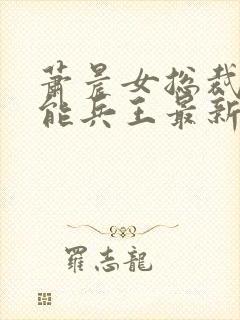 萧晨女总裁
能兵王最新
羅志龍